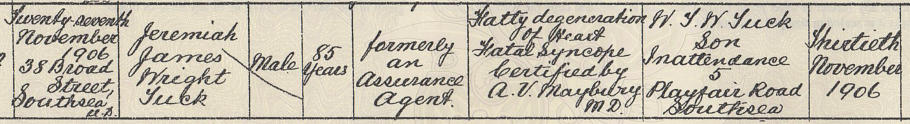 Twenty-seventh
November
1906
38 Broad
Street,
Southsea
U.D.
Jeremiah
James
Wright
Tuck
Male
85
Years
formerly
an
Assurance
Agent.
Fatty degeneration
of Heart
Fatal Syncope
Certified by
A. V. Maybury
M.D.
W. T. W. Tuck
Son
In attendance
5
Playfair Road
Southsea
Thirtieth
November
1906